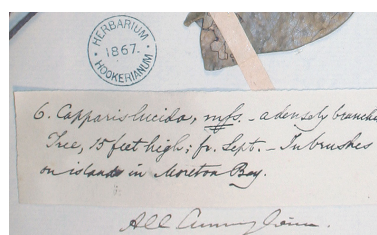 HERBARIUM
HOOKERIANUM
1867.
6. Capparis lucida, mss. - a densely branched
Tree, 15 feet high; fr. Sept. - In brushes
on islands in Moreton Bay.
All Cunningham.